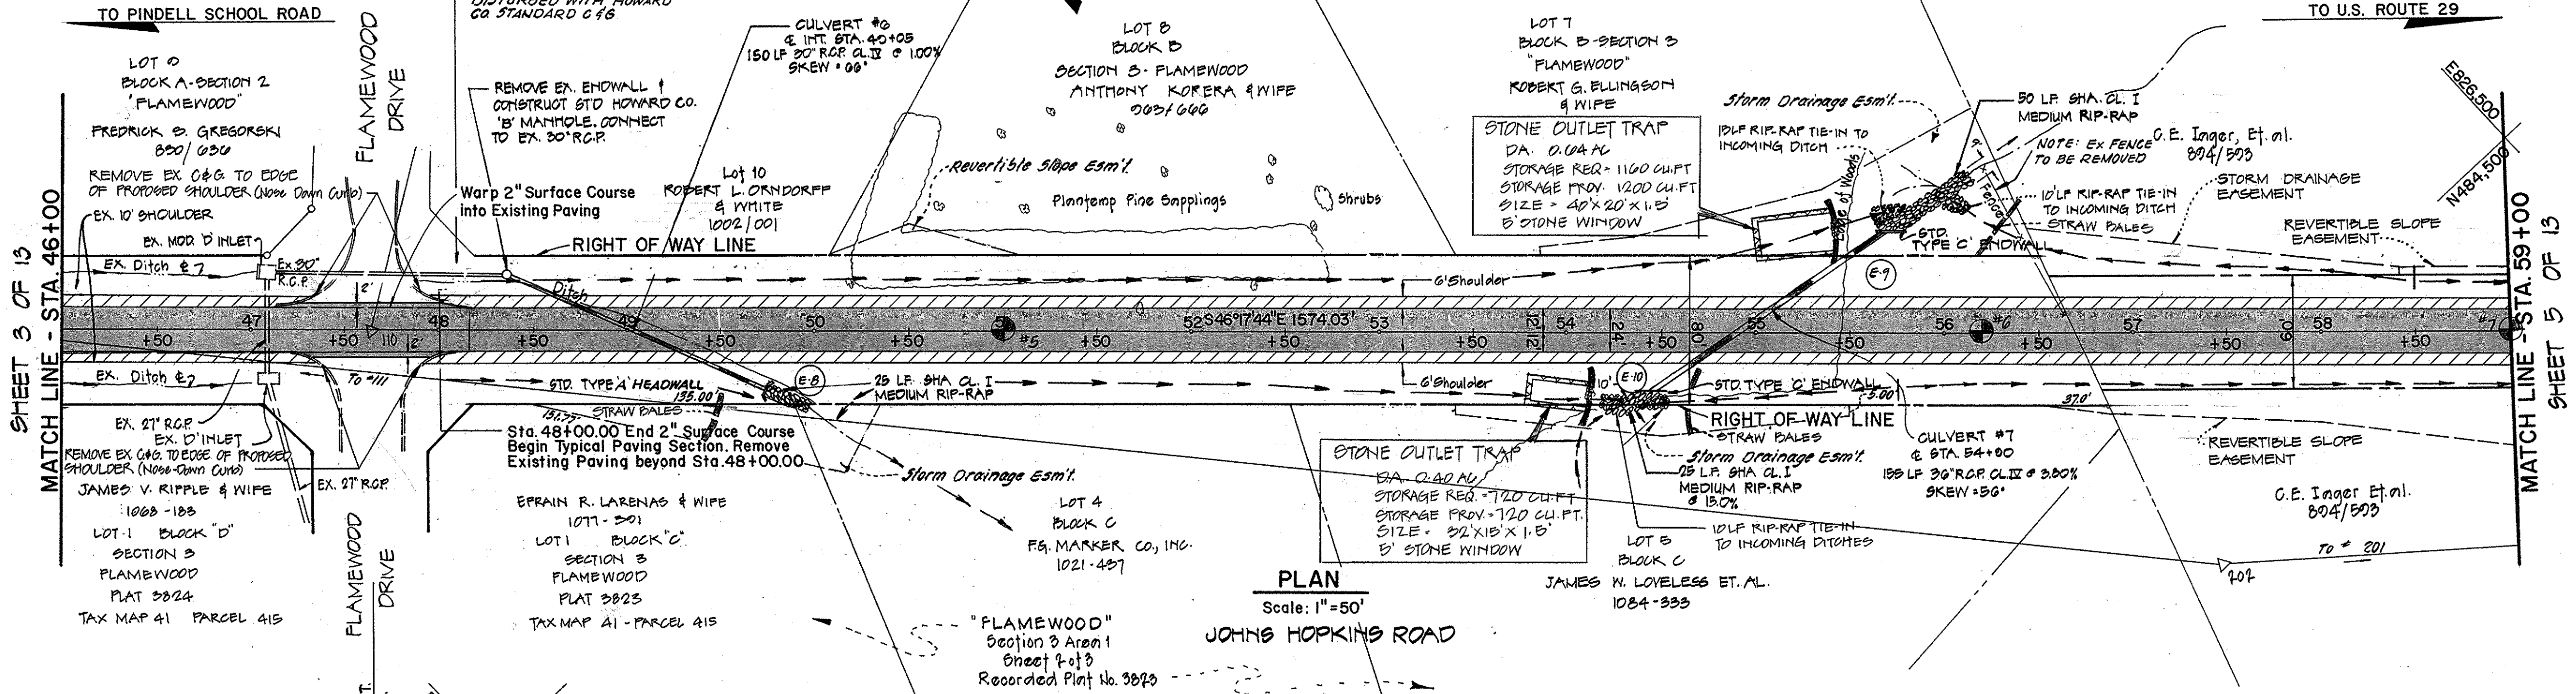 TO PINDELL SCHOOL ROAD
TO U.S. ROUTE 29
DISTURBED WITH HOWARD
CO. STANDARD C & G
FLAMEWOOD
DRIVE
BLOCK A-SECTION 2
"FLAMEWOOD"
FREDRICK S. GREGORSKI
830/636
REMOVE EX. C&G. TO EDGE
OF PROPOSED SHOULDER (Nose Down Curb)
EX. 10' SHOULDER
EX. MOD. 'D' INLET
EX. Ditch ℄
Ex. 30"
R.C.P.
SHEET 3 OF 13
MATCH LINE - STA. 46+00
REMOVE EX. ENDWALL &
CONSTRUCT STD HOWARD CO.
'B' MANHOLE. CONNECT
TO EX. 30" R.C.P.
Warp 2" Surface Course
into Existing Paving
CULVERT #6
℄ INT. STA. 40+05
150 LF 30" R.C.P. CL. IV @ 1.00%
SKEW = 66°
Lot 10
ROBERT L. ORNDORFF
& WHITE
1002/001
RIGHT OF WAY LINE
LOT 8
BLOCK B
SECTION 3- FLAMEWOOD
ANTHONY KORERA & WIFE
963/666
Revertible Slope Esm't.
Plantemp Pine Sapplings
Shrubs
LOT 7
BLOCK B-SECTION 3
"FLAMEWOOD"
ROBERT G. ELLINGSON
& WIFE
STONE OUTLET TRAP
DA. 0.64 AC
STORAGE REQ- 1160 CU.FT
STORAGE PROV. 1200 CU.FT
SIZE = 40'X20'X1.5'
5' STONE WINDOW
Storm Drainage Esm't.
15 LF RIP-RAP TIE-IN TO
INCOMING DITCH
Line of Woods
50 LF. SHA. CL. I
MEDIUM RIP-RAP
NOTE: EX FENCE
TO BE REMOVED
C.E. Inger, Et. al.
894/593
Fence
10' LF RIP-RAP TIE-IN
TO INCOMING DITCH
STRAW BALES
STORM DRAINAGE
EASEMENT
STD.
TYPE 'C' ENDWALL
REVERTIBLE SLOPE
EASEMENT
E826,500
N484,500
MATCH LINE - STA. 59+00
SHEET 5 OF 13
Ditch
6' Shoulder
E-9
47
48
49
50
52
S46°17'44"E 1574.03'
53
54
55
56
57
58
+50
+50
+50
+50
+50
+50
+50
+50
+50
+50
+50
+50
+50
110
2'
2'
#5
#6
#7
12'
12'
24'
80'
EX. Ditch ℄
To #111
STD. TYPE 'A' HEADWALL
135.00'
STRAW BALES
E-8
25 LF. SHA CL. I
MEDIUM RIP-RAP
6' Shoulder
10'
E-10
STD. TYPE 'C' ENDWALL
5.00'
37.0'
RIGHT OF WAY LINE
STRAW BALES
Storm Drainage Esm't.
25 L.F. SHA. CL. I
MEDIUM RIP-RAP
@ 15.0%
10 LF RIP-RAP TIE-IN
TO INCOMING DITCHES
CULVERT #7
℄ STA. 54+90
155 LF 36" R.C.P. CL. IV @ 3.80%
SKEW = 56°
REVERTIBLE SLOPE
EASEMENT
C.E. Inger Et. al.
894/593
To # 201
202
EX. 27" R.C.P.
EX. 'D' INLET
REMOVE EX. C&G. TO EDGE OF PROPOSED
SHOULDER (Nose-Down Curb)
EX. 27" R.C.P.
JAMES V. RIPPLE & WIFE
1068-183
LOT-1 BLOCK "D"
SECTION 3
FLAMEWOOD
PLAT 3824
TAX MAP 41 PARCEL 415
FLAMEWOOD
DRIVE
Sta. 48+00.00 End 2" Surface Course
Begin Typical Paving Section. Remove
Existing Paving beyond Sta. 48+00.00
EFRAIN R. LARENAS & WIFE
1077-301
LOT 1 BLOCK "C"
SECTION 3
FLAMEWOOD
PLAT 3823
TAX MAP 41 - PARCEL 415
Storm Drainage Esm't.
LOT 4
BLOCK C
F.G. MARKER CO., INC.
1021-437
STONE OUTLET TRAP
D.A. 0.40 AC
STORAGE REQ. = 720 CU.FT
STORAGE PROV. = 720 CU.FT.
SIZE = 32'X15'X1.5'
5' STONE WINDOW
LOT 5
BLOCK C
JAMES W. LOVELESS ET. AL.
1084-333
PLAN
Scale: 1"=50'
JOHNS HOPKINS ROAD
"FLAMEWOOD"
Section 3 Area 1
Sheet 2 of 3
Recorded Plat No. 3823